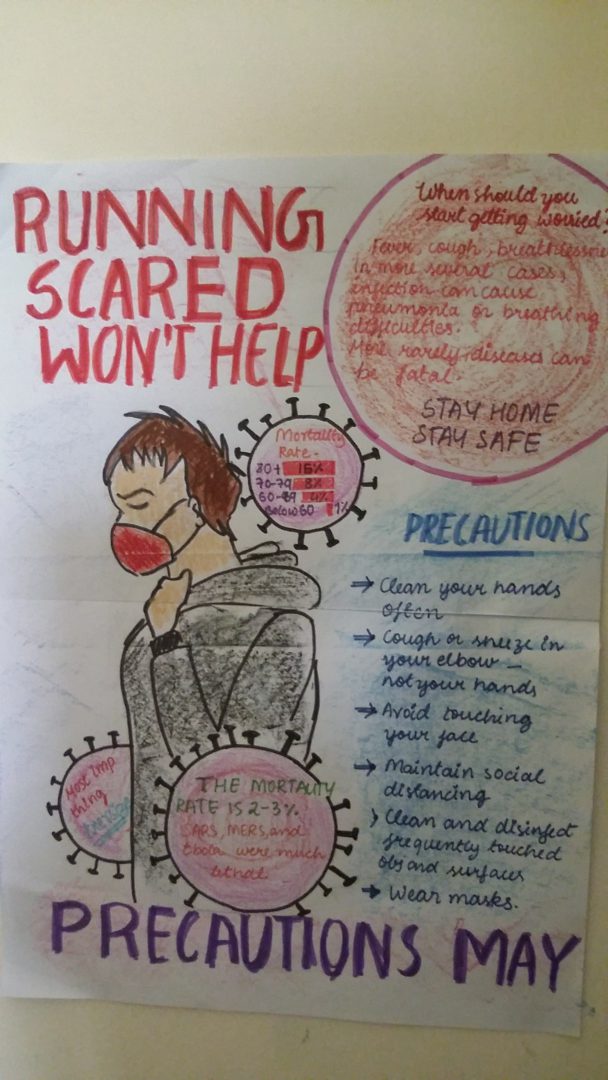 RUNNING
SCARED
WON'T HELP
When should you
start getting worried?
Fever, cough, breathlessne
In more several cases,
infection can cause
pneumonia or breathing
difficulties.
More rarely, diseases can
be fatal.
STAY HOME
STAY SAFE
Mortality
Rate.
80+ 15%
70-79 8%
60-69 4%
Below 60 1%
PRECAUTIONS
→ Clean your hands
often
→ Cough or sneeze in
your elbow –
not your hands
→ Avoid touching
your face
→ Maintain social
distancing
> Clean and disinfect
frequently touched
obj and surfaces
→ Wear masks.
Most imp
thing
THE MORTALITY
RATE IS 2-3%.
SARS, MERS, and
Ebola were much
lethal
PRECAUTIONS MAY